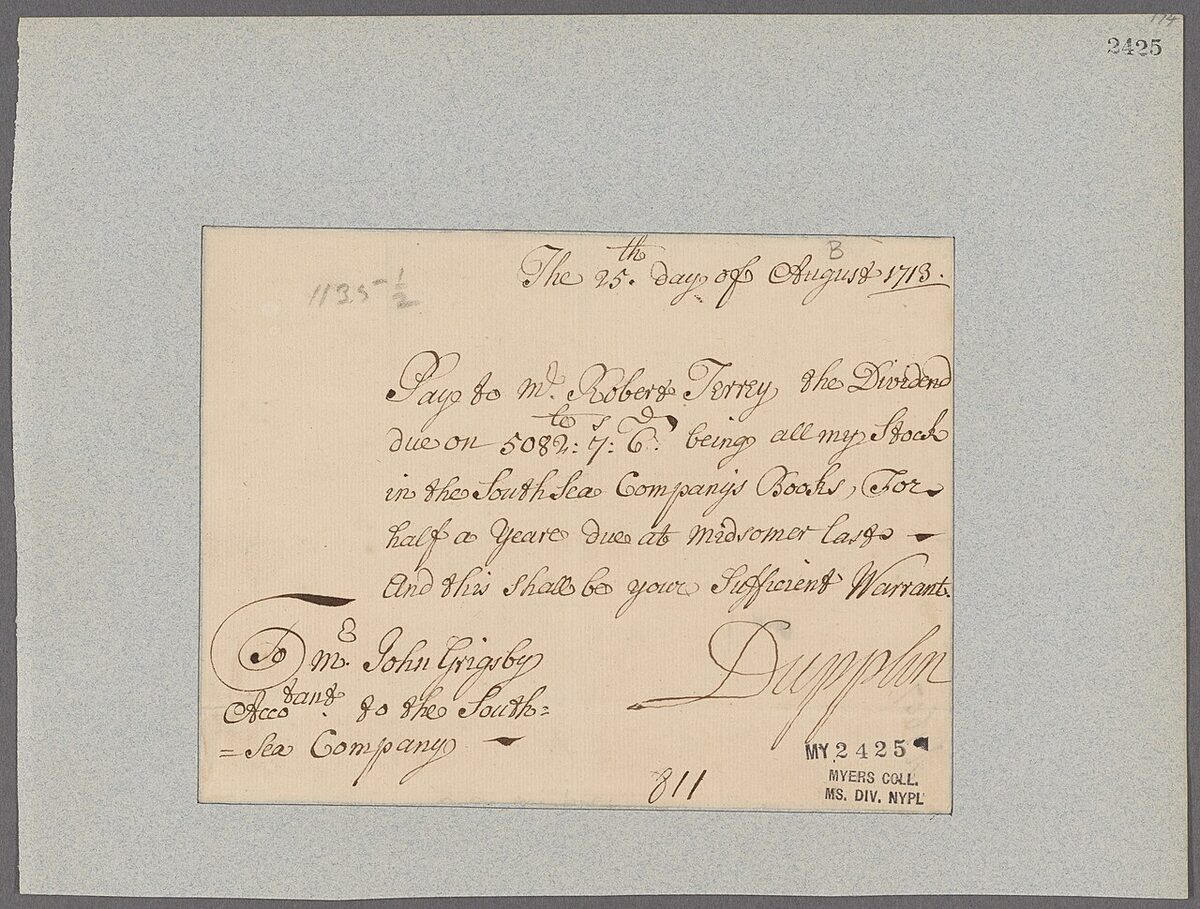 2425
The 25th. day of August 1713.
B
1135 1/2
Pay to Mr. Robert Terrey the Dividend
due on 5082li: 7s: 6d: being all my Stock
in the South Sea Companys Books, For
half a Yeare due at Midsomer last
And this shall be your Sufficient Warrant.
Dupplin
To Mr. John Grigsby
Accotant. to the South=
=Sea Company
811
MY 2425
MYERS COLL.
MS. DIV. NYPL